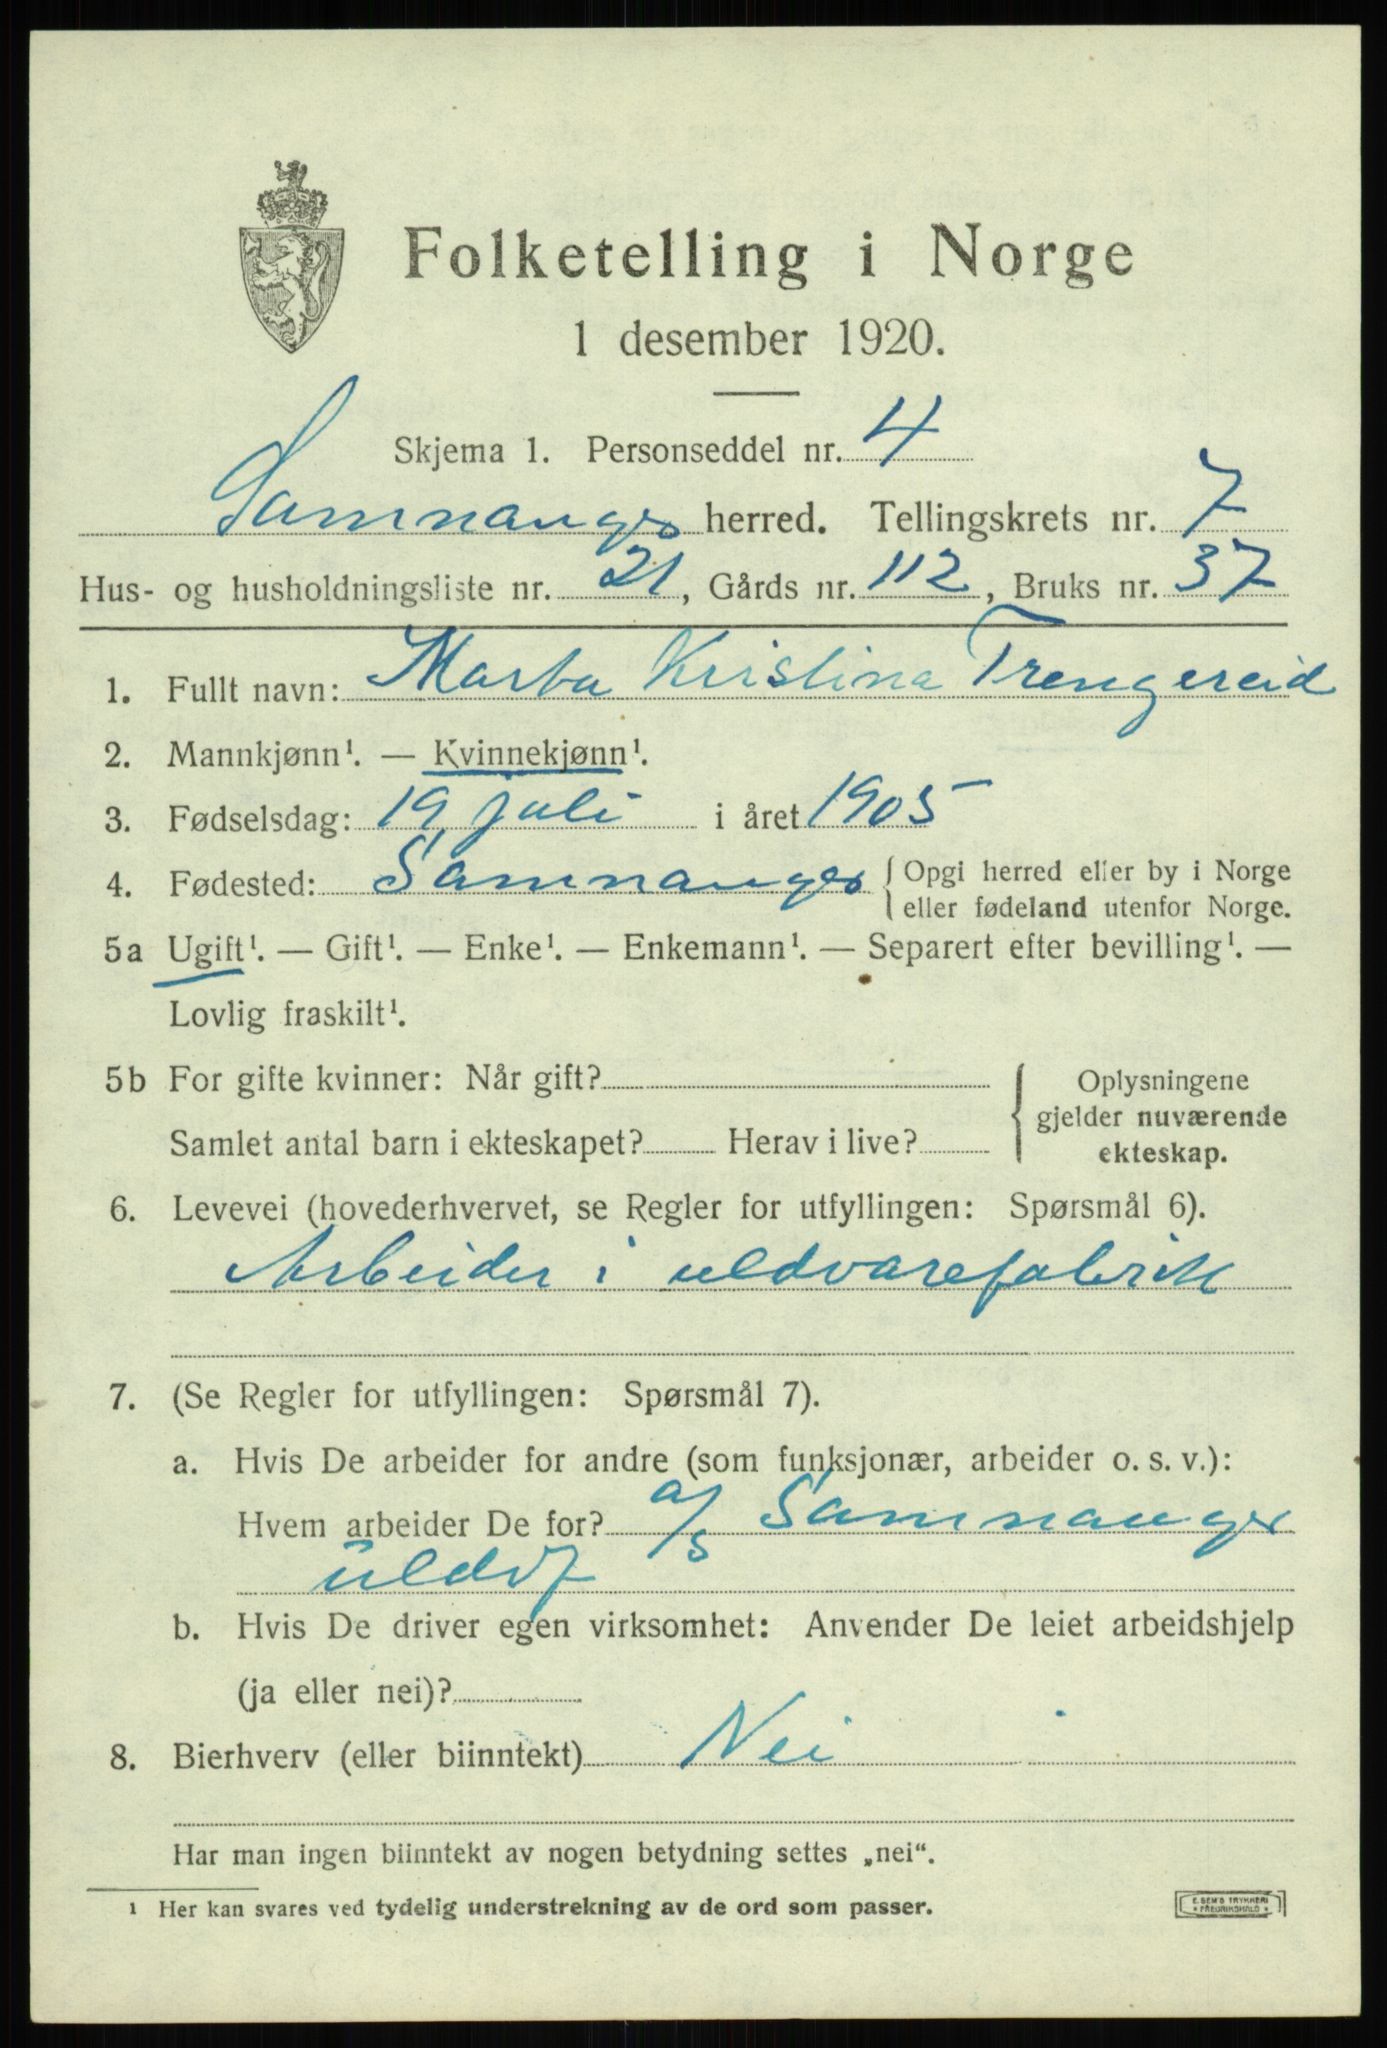 Folketelling i Norge
1 desember 1920.
Skjema 1. Personseddel nr. 4
Samnanger herred. Tellingskrets nr. 7
Hus- og husholdningsliste nr. 21, Gårds nr. 112, Bruks nr. 37
1. Fullt navn: Marta Kristina Trengereid
2. Mannkjønn¹. — Kvinnekjønn¹.
3. Fødselsdag: 19 juli i året 1905
4. Fødested: Samnanger { Opgi herred eller by i Norge
eller fødeland utenfor Norge.
5a Ugift¹. — Gift¹. — Enke¹. — Enkemann¹. — Separert efter bevilling¹. —
Lovlig fraskilt¹.
5b For gifte kvinner: Når gift? Oplysningene
gjelder nuværende
Samlet antal barn i ekteskapet? Herav i live? ekteskap.
6. Levevei (hovederhvervet, se Regler for utfyllingen: Spørsmål 6).
Arbeider i uldvarefabrik
7. (Se Regler for utfyllingen: Spørsmål 7).
a. Hvis De arbeider for andre (som funksjonær, arbeider o. s. v.):
Hvem arbeider De for? a/s Samnanger
uldvf
b. Hvis De driver egen virksomhet: Anvender De leiet arbeidshjelp
(ja eller nei)?
8. Bierhverv (eller biinntekt) Nei
Har man ingen biinntekt av nogen betydning settes „nei“.
¹ Her kan svares ved tydelig understrekning av de ord som passer.
E. SEM'S TRYKKERI
* FREDRIKSHALD *